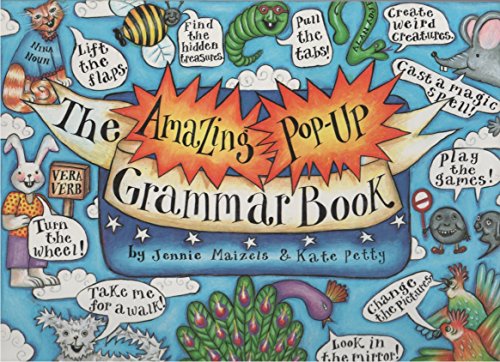 NINA
NOUN
Lift
the
flaps.
Find
the
hidden
treasures.
Pull
the
tabs!
Create
weird
creatures.
Cast a magic
spell!
The Amazing Pop-Up
Grammar Book
by Jennie Maizels & Kate Petty
VERA
VERB
Turn
the
wheel!
Play
the
games!
Take me
for a walk!
Change
the pictures.
Look in
the mirror!